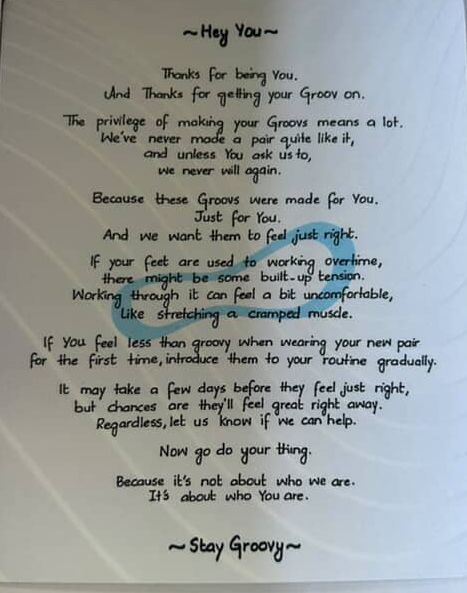 ~Hey You~
Thanks for being You.
And Thanks for getting your Groov on.
The privilege of making your Groovs means a lot.
We've never made a pair quite like it,
and unless You ask us to,
we never will again.
Because these Groovs were made for You.
Just for You.
And we want them to feel just right.
If your feet are used to working overtime,
there might be some built-up tension.
Working through it can feel a bit uncomfortable,
Like stretching a cramped muscle.
If You feel less than groovy when wearing your new pair
for the first time, introduce them to your routine gradually.
It may take a few days before they feel just right,
but chances are they'll feel great right away.
Regardless, let us know if we can help.
Now go do your thing.
Because it's not about who we are.
It's about who You are.
~Stay Groovy~